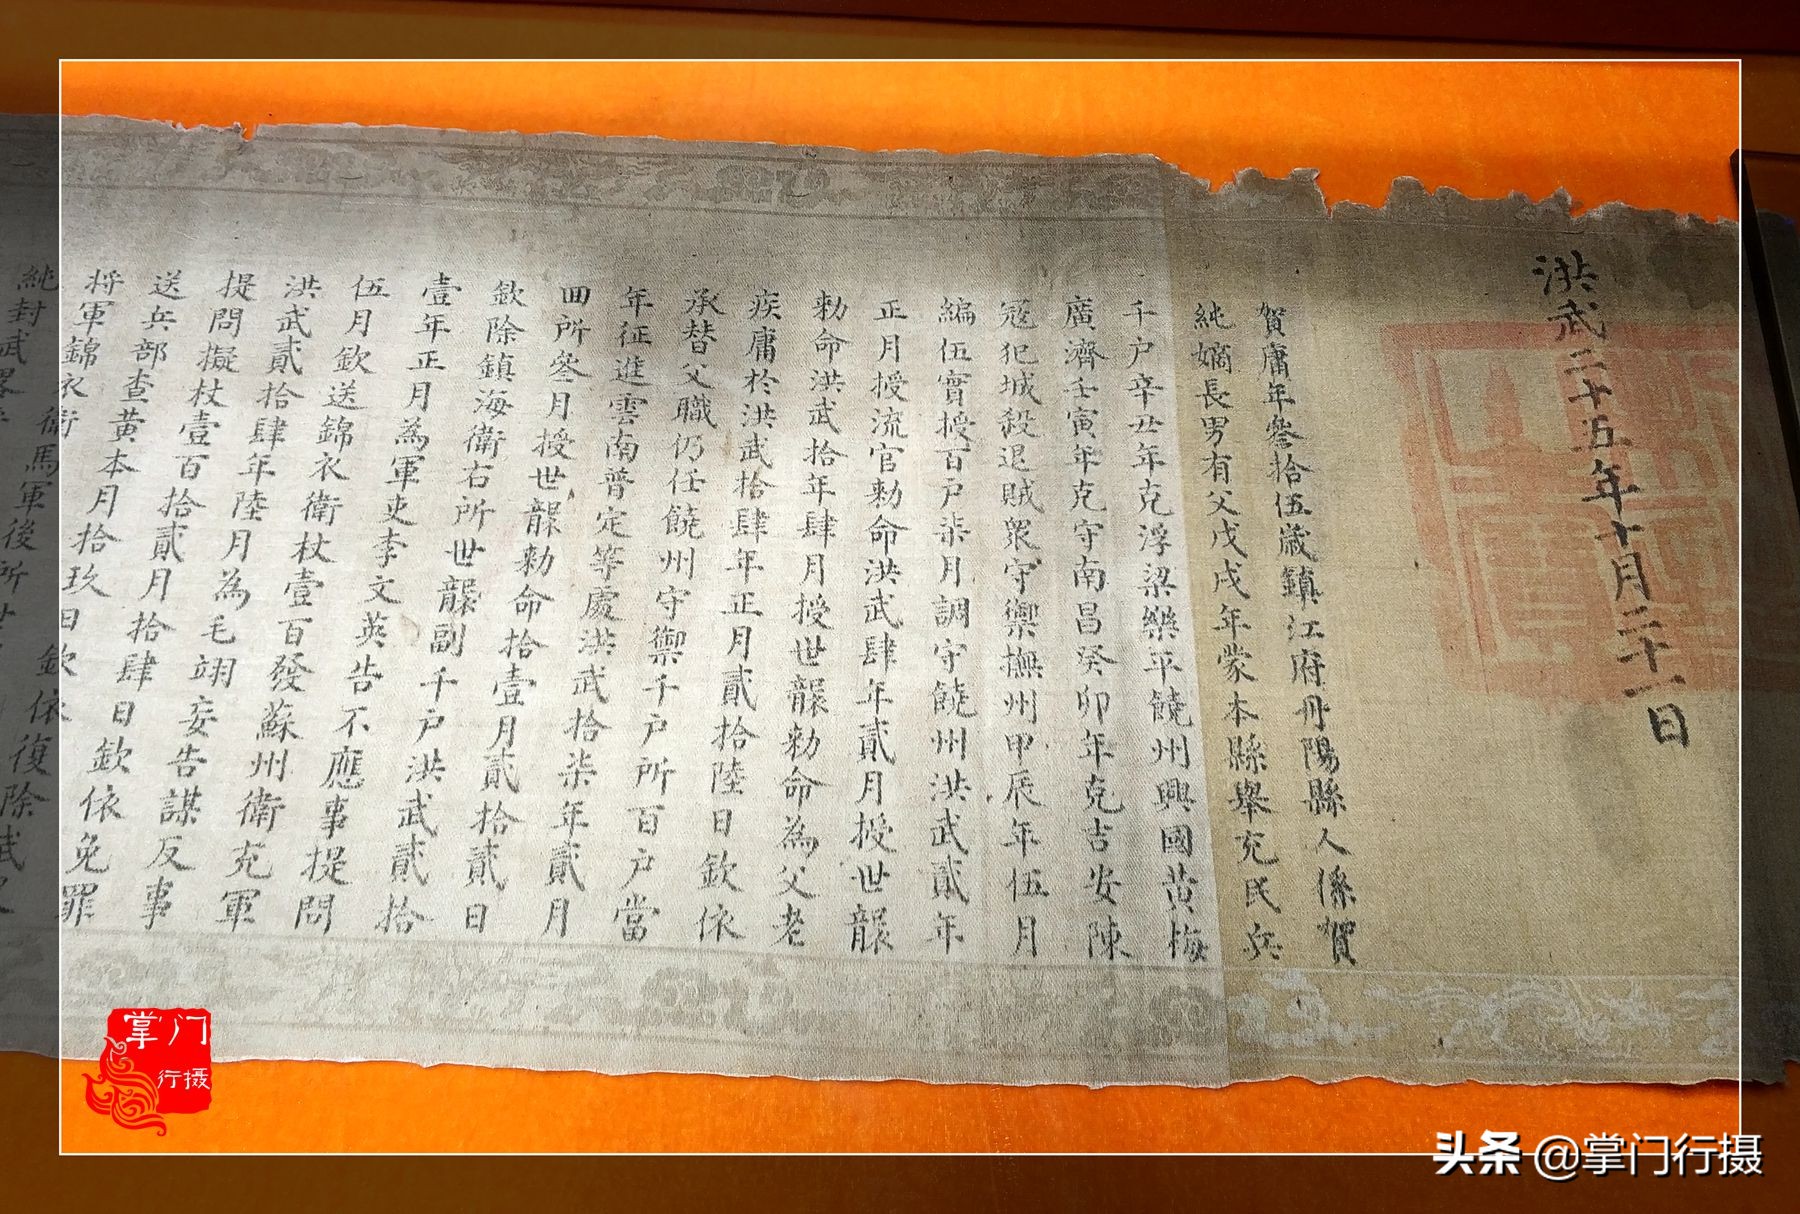 洪武二十五年十月二十一日
賀庸年叄拾伍歲鎮江府丹陽縣人係賀
純嫡長男有父戊戌年蒙本縣舉充民兵
千户辛丑年克浮梁樂平饒州興國黄梅
廣濟壬寅年克守南昌癸卯年克吉安陳
寇犯城殺退賊衆守禦撫州甲辰年伍月
編伍實授百户柒月調守饒州洪武貳年
正月授流官勑命洪武肆年貳月授世襲
勑命洪武拾年肆月授世襲勑命為父老
疾庸於洪武拾肆年正月貳拾陸日欽依
承替父職仍任饒州守禦千户所百户當
年征進雲南普定等處洪武拾柒年貳月
回所叄月授世襲勑命拾壹月貳拾貳日
欽除鎮海衛右所世襲副千户洪武貳拾
壹年正月為軍吏李文英告不應事提問
伍月欽送錦衣衛杖壹百發蘇州衛充軍
洪武貳拾肆年陸月為毛翊妄告謀反事
提問擬杖壹百拾貳月拾肆日欽依免罪
送兵部查黄本月拾玖日欽依復除武
将軍錦衣衛馬軍後所
純封武畧
掌门
行摄
头条 @掌门行摄